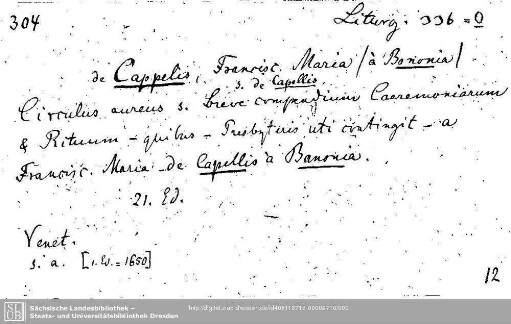 304
Liturg. 336 = 0
de Cappelis, Francisc. Maria / à Bononia /
s. de Capellis
Circulus aureus s. breve compendium Caeremoniarum
& Rituum – quibus – Presbyteris uti contingit – a
Francisc. Maria de Capellis à Bononia.
21. Ed.
Venet.
s. a. [1. Ed. = 1650]
12
SLUB
Sächsische Landesbibliothek –
Staats- und Universitätsbibliothek Dresden